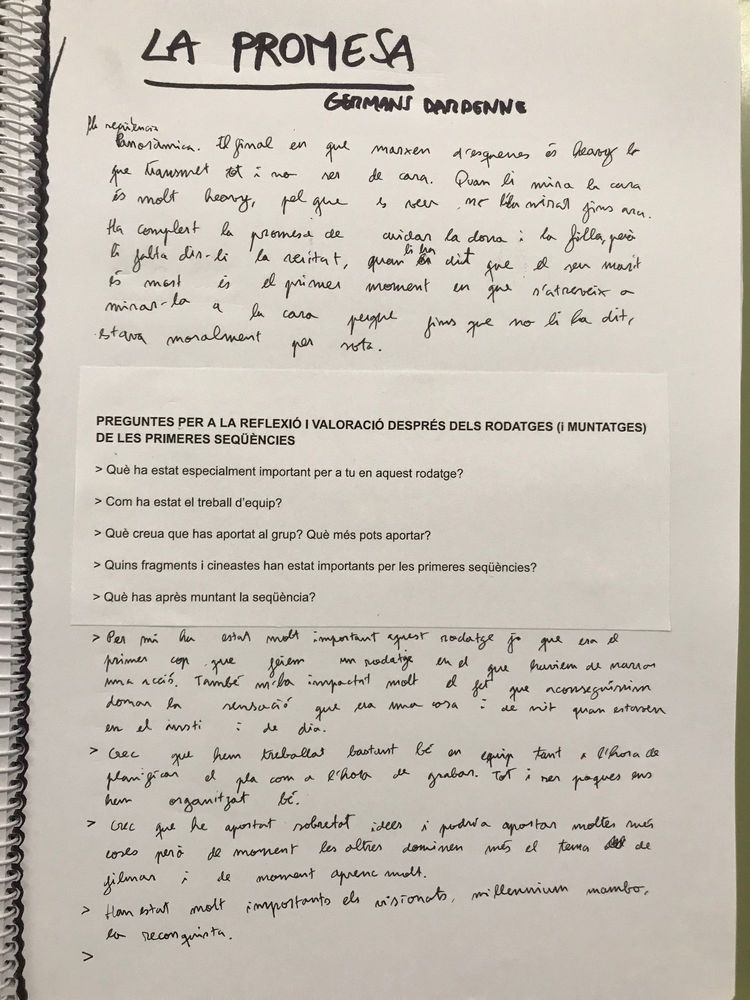 LA PROMESA
GERMANS DARDENNE
Pla seqüència
Panoràmica. El final en que marxen d'esquenes és heavy lo
que transmet tot i no ser de cara. Quan li mira la cara
és molt heavy, pel que es veu no l'ha mirat fins ara.
Ha complert la promesa de cuidar la dona i la filla, però
li falta dir-li la veritat, quan li ha dit que el seu marit
és mort és el primer moment en que s'atreveix a
mirar-la a la cara perque fins que no li ha dit,
estava moralment per sota.
PREGUNTES PER A LA REFLEXIÓ I VALORACIÓ DESPRÉS DELS RODATGES (i MUNTATGES)
DE LES PRIMERES SEQÜÈNCIES
> Què ha estat especialment important per a tu en aquest rodatge?
> Com ha estat el treball d'equip?
> Què creua que has aportat al grup? Què més pots aportar?
> Quins fragments i cineastes han estat importants per les primeres seqüències?
> Què has après muntant la seqüència?
> Per mi ha estat molt important aquest rodatge ja que era el
primer cop que feiem un rodatge en el que haviem de narrar
una acció. També m'ha impactat molt el fet que aconseguissim
donar la sensació que era una casa i de nit quan estavem
en el insti i de dia.
> Crec que hem treballat bastant bé en equip tant a l'hora de
planificar el pla com a l'hora de grabar. Tot i ser poques ens
hem organitzat bé.
> Crec que he aportat sobretot idees i podria aportar moltes més
coses però de moment les altres dominen més el tema de
filmar i de moment aprenc molt.
> Han estat molt importants els visionats, millennium mambo,
la reconquista.
>